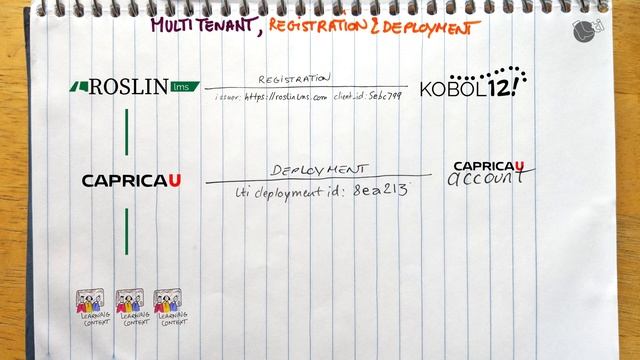 MULTI TENANT, REGISTRATION & DEPLOYMENT
lti
ROSLIN lms
REGISTRATION
issuer: https://roslinlms.com client_id: 5ebc799
KOBOL12!
CAPRICAU
DEPLOYMENT
lti deployment id: 8ea213
CAPRICAU
account
LEARNING CONTEXT
LEARNING CONTEXT
LEARNING CONTEXT